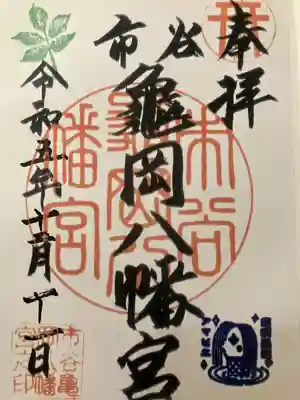 奉拝
市谷
龜岡八幡宮
令和五年十月十一日
市谷
八幡宮
市谷亀
岡八幡
宮之印